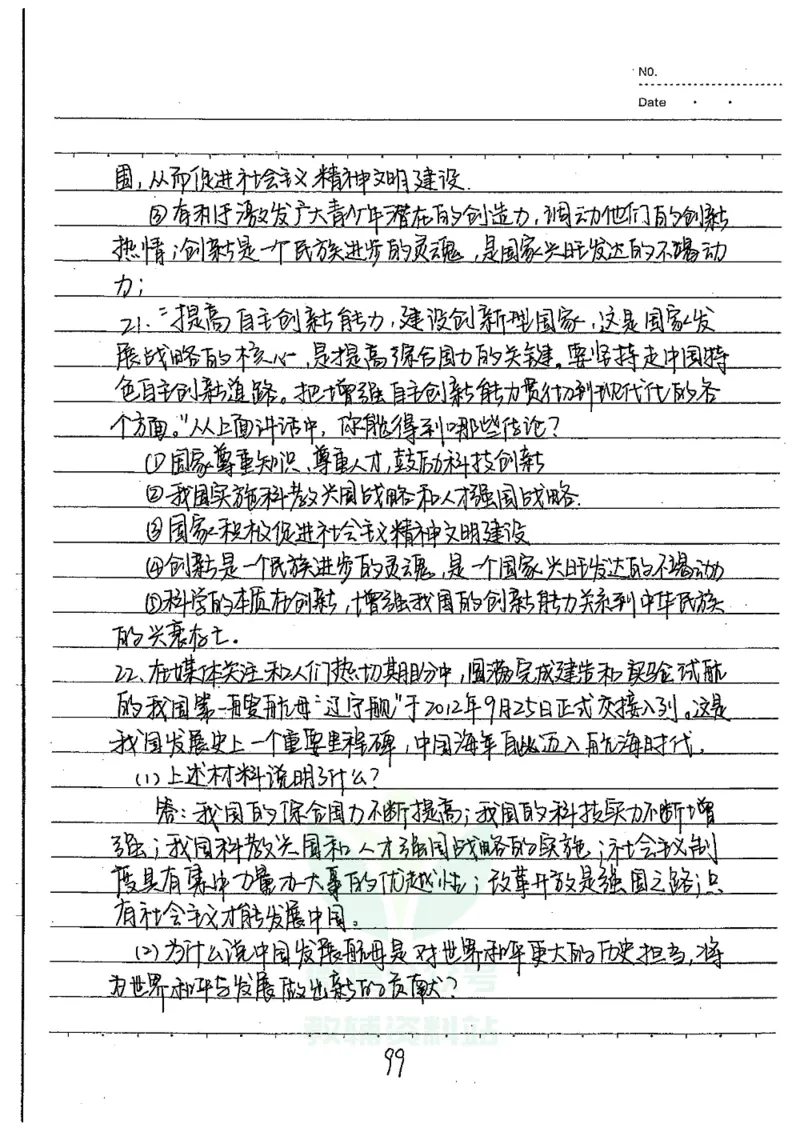 No.
Date
围,从而促进社会主义精神文明建设.
③有利于激发广大青少年潜在的创造力,调动他们的创新
热情;创新是一个民族进步的灵魂,是国家兴旺发达的不竭动
力;
21."提高自主创新能力,建设创新型国家,这是国家发
展战略的核心,是提高综合国力的关键。要坚持走中国特
色自主创新道路。把增强自主创新能力贯彻到现代化的各
个方面。"从上面讲话中,你能得到哪些结论?
①国家尊重知识、尊重人才,鼓励科技创新
②我国实施科教兴国战略和人才强国战略.
③国家积极促进社会主义精神文明建设
④创新是一个民族进步的灵魂,是一个国家兴旺发达的不竭动
⑤科学的本质在创新,增强我国的创新能力关系到中华民族
的兴衰存亡.
22、在媒体关注和人们热切期盼中,圆满完成建造和实验试航
的我国第一艘航母"辽宁舰"于2012年9月25日正式交接入列。这是
我国发展史上一个重要里程碑,中国海军自此迈入航海时代.
(1)上述材料说明了什么?
答:我国的综合国力不断提高;我国的科技实力不断增
强;我国科教兴国和人才强国战略的实施;社会主义制
度具有集中力量办大事的优越性;改革开放是强国之路;只
有社会主义才能发展中国。
(2)为什么说中国发展航母是对世界和平更大的历史担当,将
为世界和平与发展做出新的贡献?
教辅资料站
99